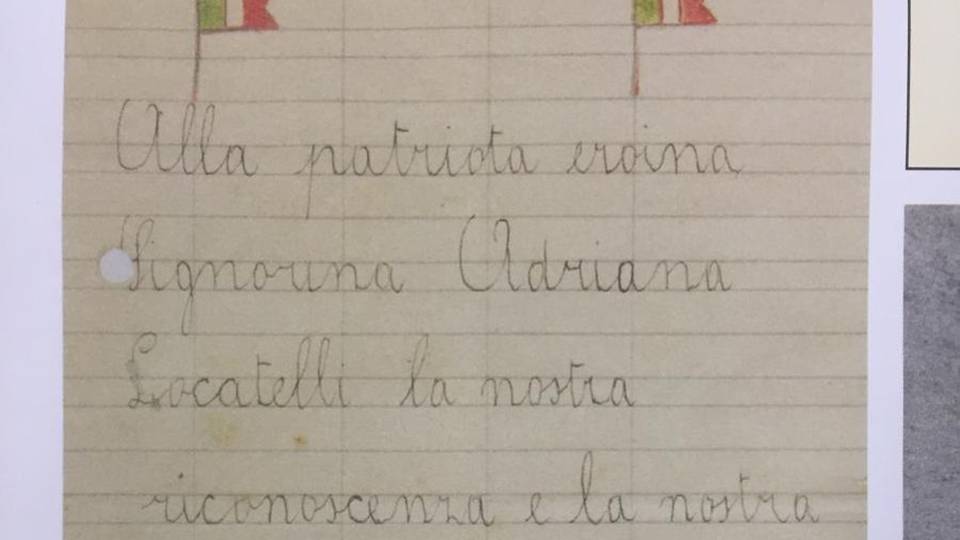 Alla patriota eroina
Signorina Adriana
Locatelli la nostra
riconoscenza e la nostra